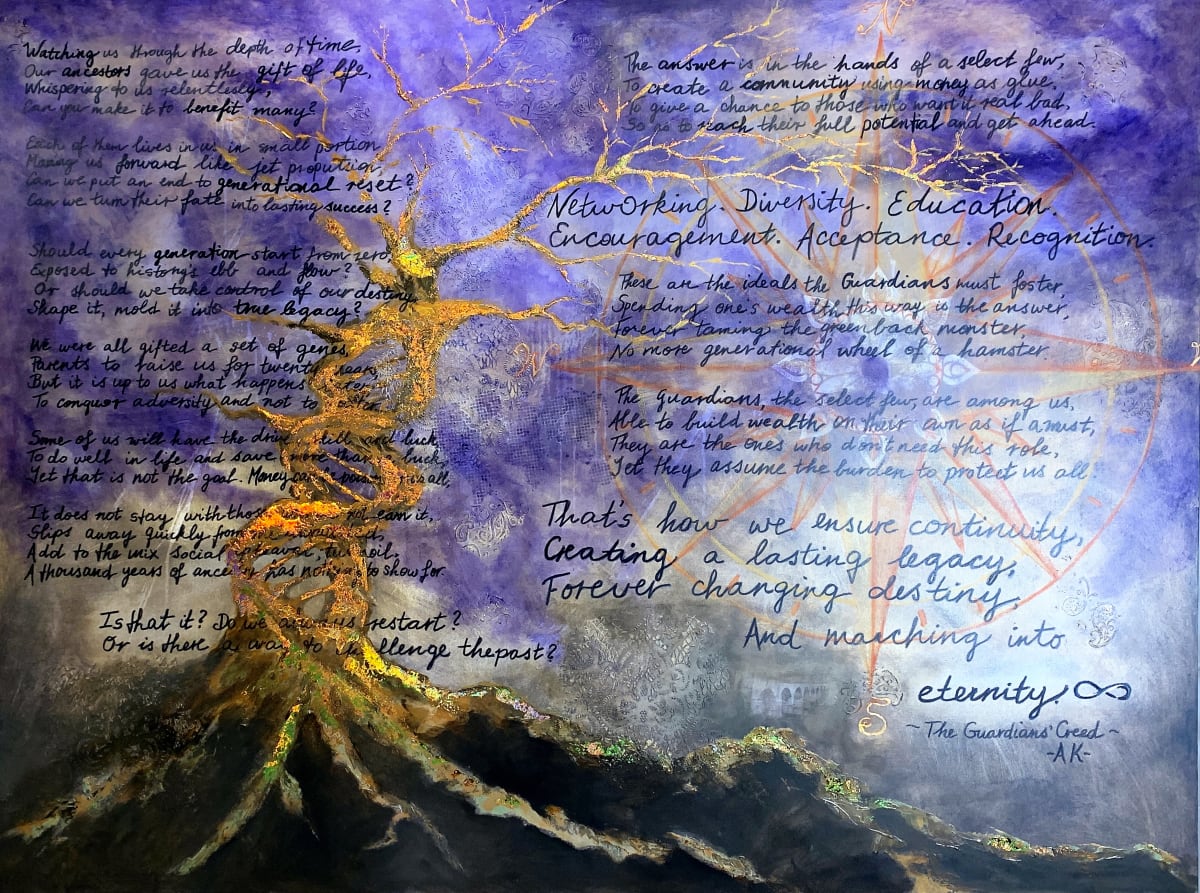 Watching us through the depth of time,
Our ancestors gave us the gift of life,
Whispering to us relentlessly,
Can you make it to benefit many?
Each of them lives in us in small portion
Moving us forward like jet propulsion,
Can we put an end to generational reset?
Can we turn their fate into lasting success?
Should every generation start from zero,
Exposed to history's ebb and flow?
Or should we take control of our destiny,
Shape it, mold it into true legacy?
We were all gifted a set of genes,
Parents to raise us for twenty years,
But it is up to us what happens
To conquer adversity and not to
Some of us will have the drive, skill and luck,
To do well in life and save more than a buck,
Yet that is not the goal. Money is all,
It does not stay with those not earn it,
Slips away quickly from
Add to the mix social turmoil.
A thousand years of has to show for.
Is that it? Do we always restart?
Or is there a way to challenge the past?
The answer is in the hands of a select few,
To create a community using money as glue.
To give a chance to those who want it real bad,
So as to reach their full potential and get ahead.
Networking. Diversity. Education.
Encouragement. Acceptance. Recognition.
These are the ideals the Guardians must foster,
Spending one's wealth this way is the answer,
Forever taming the greenback monster.
No more generational wheel of a hamster.
The guardians, the select few, are among us,
Able to build wealth on their own as if a must,
They are the ones who don't need this role,
Yet they assume the burden to protect us all.
That's how we ensure continuity,
Creating a lasting legacy,
Forever changing destiny,
And marching into
eternity. ∞
~ The Guardians' Creed ~
-AK-
N
W
S